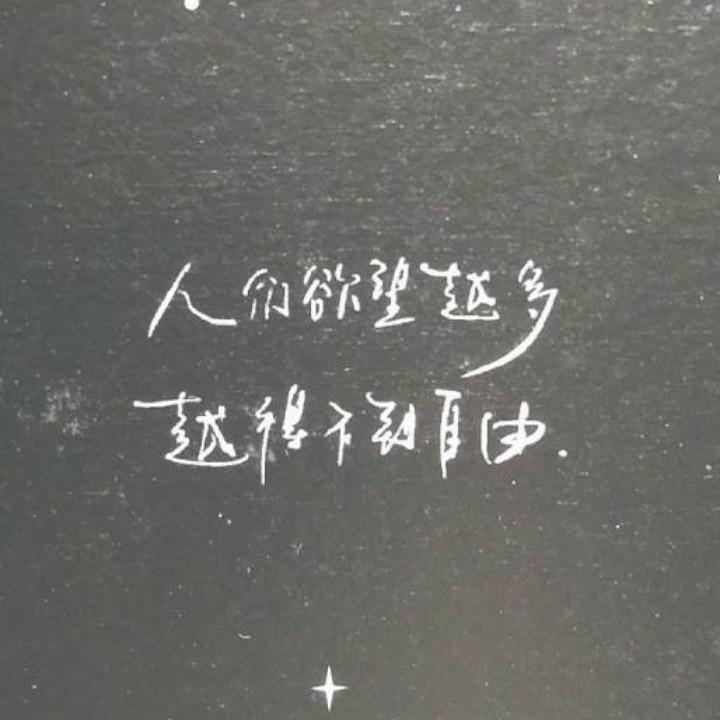 人们欲望越多
越得不到自由.